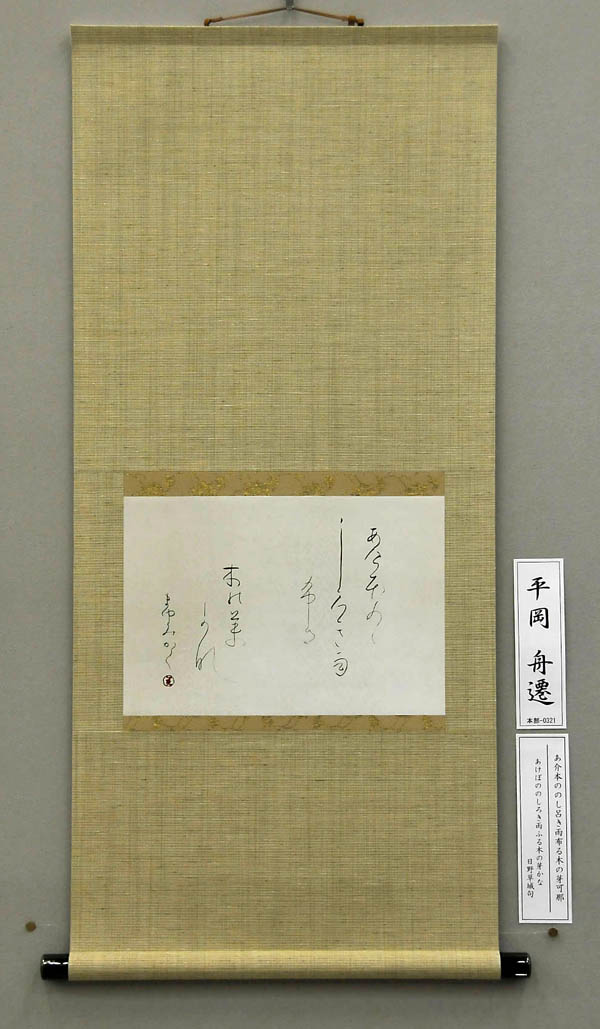 あ介本のゝ
し呂き雨
布る
木の芽
可那
平岡 舟遷
本部-0321
あ介本ののし呂き雨布る木の芽可那
あけぼののしろき雨ふる木の芽かな
日野草城句